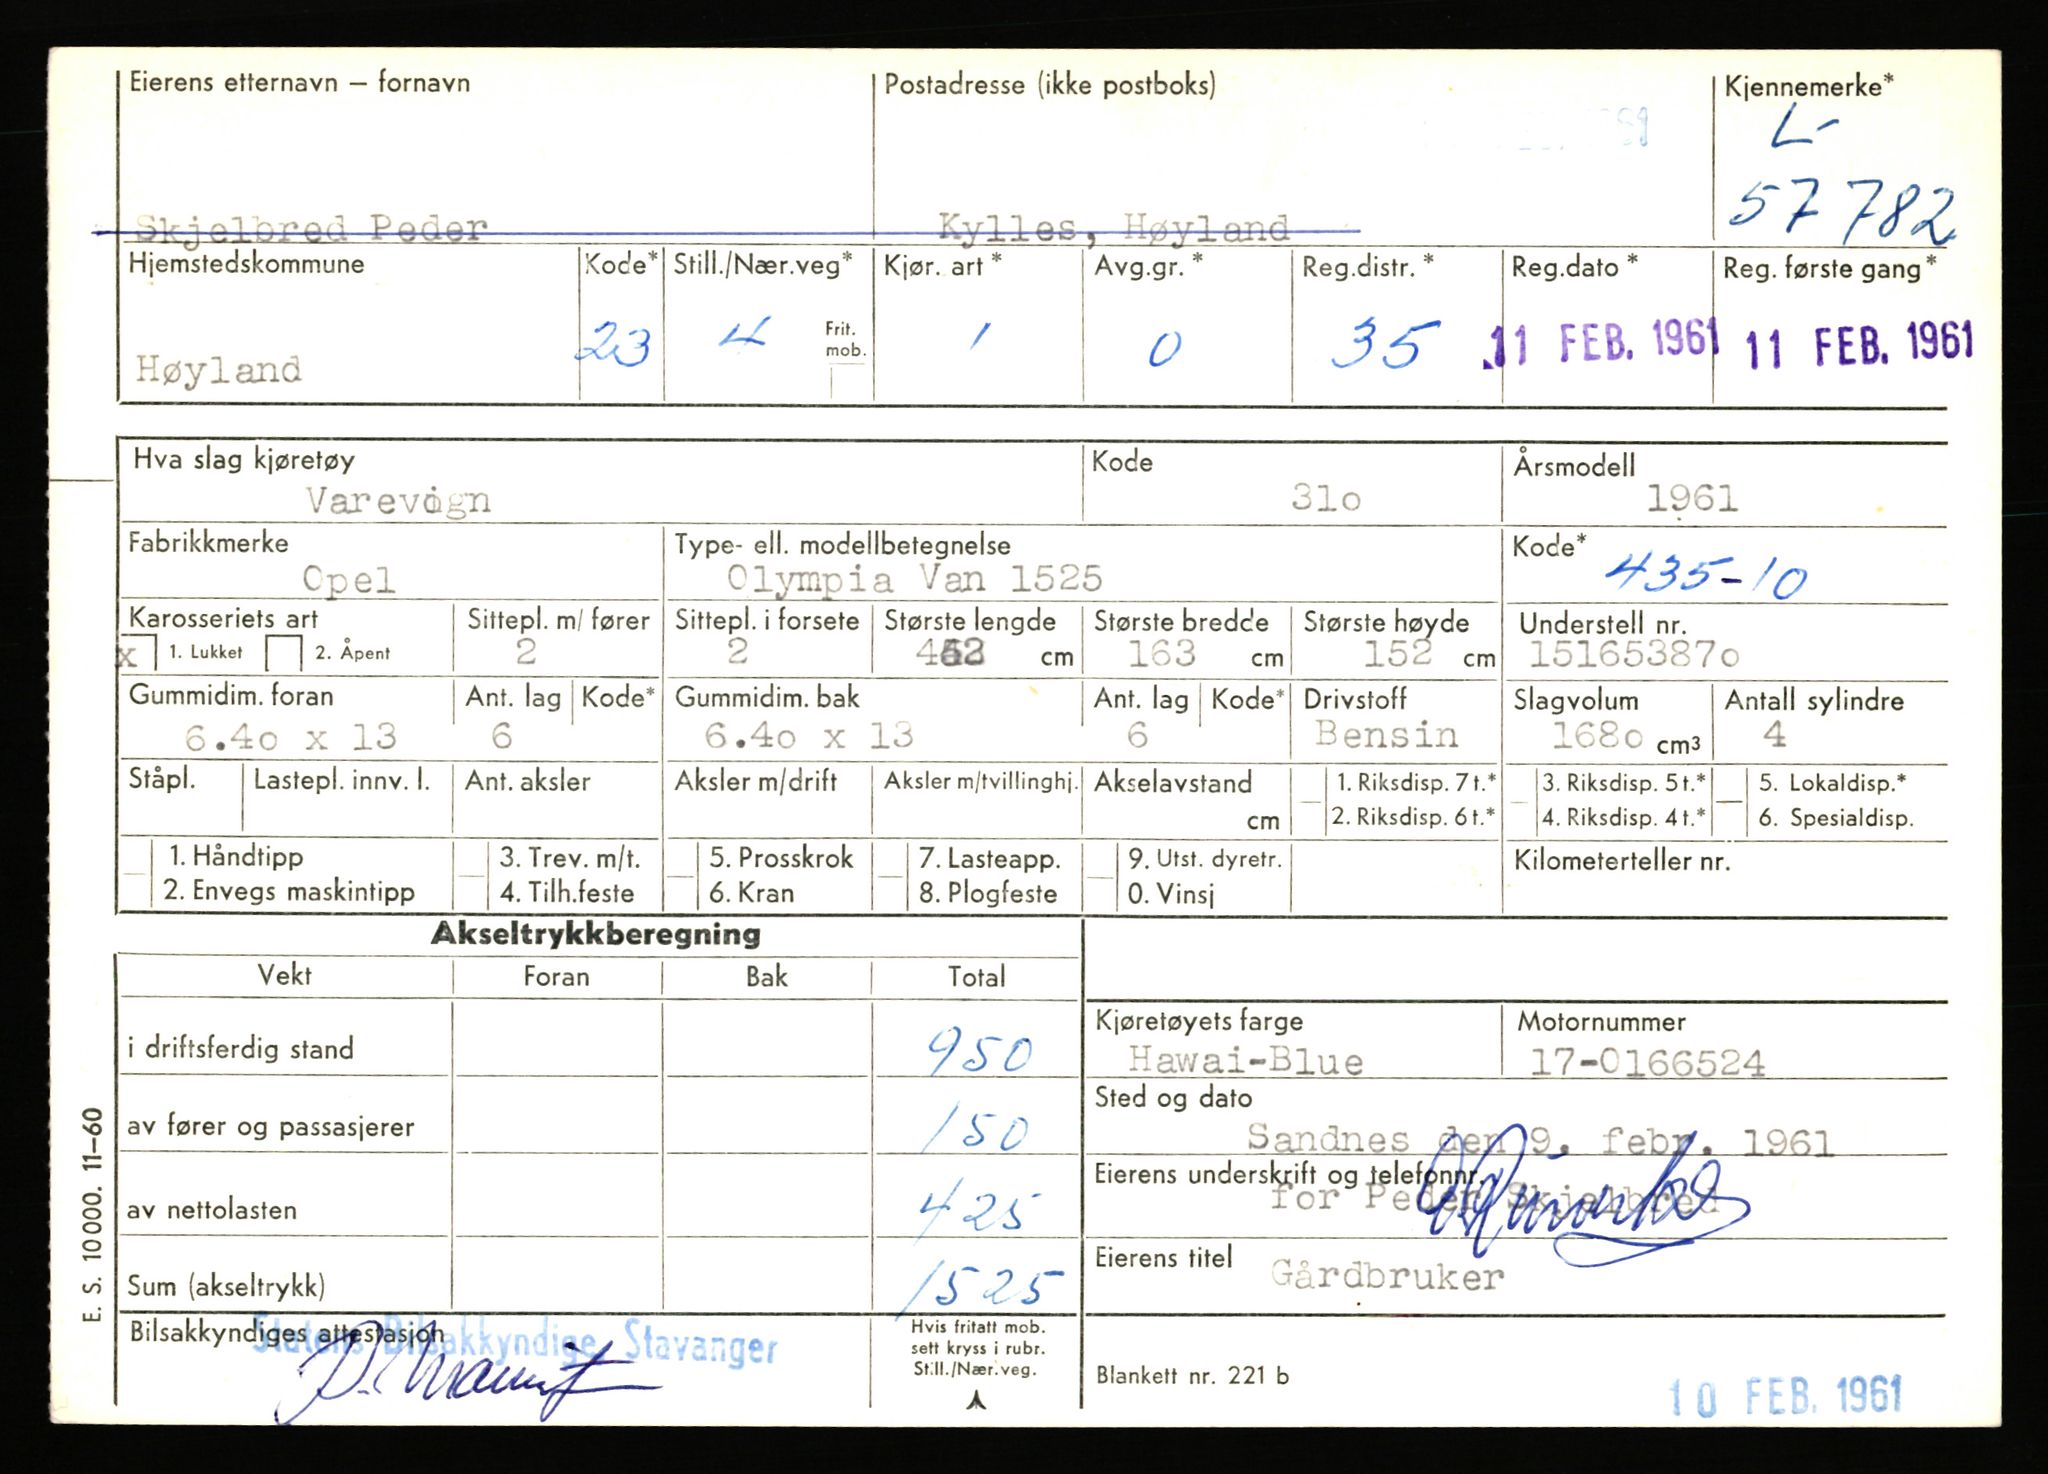 Eierens etternavn – fornavn
Postadresse (ikke postboks)
Kjennemerke*
L-
57782
Skjelbred Peder
Kylles, Høyland
Hjemstedskommune
Kode*
Still./Nær.veg*
Kjør. art *
Avg.gr. *
Reg.distr. *
Reg.dato *
Reg. første gang *
Høyland
23
4
Frit. mob.
1
0
35
11 FEB. 1961
11 FEB. 1961
Hva slag kjøretøy
Kode
Årsmodell
Varevogn
31o
1961
Fabrikkmerke
Type- ell. modellbetegnelse
Kode*
Opel
Olympia Van 1525
435-10
Karosseriets art
Sittepl. m/ fører
Sittepl. i forsete
Største lengde
Største bredde
Største høyde
Understell nr.
x 1. Lukket 2. Åpent
2
2
cm
163 cm
152 cm
15165387o
Gummidim. foran
Ant. lag
Kode*
Gummidim. bak
Ant. lag
Kode*
Drivstoff
Slagvolum
Antall sylindre
6.4o x 13
6
6.4o x 13
6
Bensin
168o cm³
4
Ståpl.
Lastepl. innv. l.
Ant. aksler
Aksler m/drift
Aksler m/tvillinghj.
Akselavstand
cm
1. Riksdisp. 7 t.*
2. Riksdisp. 6 t.*
3. Riksdisp. 5 t.*
4. Riksdisp. 4 t.*
5. Lokaldisp.*
6. Spesialdisp.
1. Håndtipp
2. Envegs maskintipp
3. Trev. m/t.
4. Tilh.feste
5. Prosskrok
6. Kran
7. Lasteapp.
8. Plogfeste
9. Utst. dyretr.
0. Vinsj
Kilometerteller nr.
Akseltrykkberegning
Vekt
Foran
Bak
Total
i driftsferdig stand
950
av fører og passasjerer
150
av nettolasten
425
Sum (akseltrykk)
1525
Kjøretøyets farge
Motornummer
Hawai-Blue
17-0166524
Sted og dato
Sandnes den 9. febr. 1961
Eierens underskrift og telefonnr.
for Peder Skjelbred
Eierens titel
Gårdbruker
Bilsakkyndiges attestasjon
Statens Bilsakkyndige, Stavanger
Hvis fritatt mob.
sett kryss i rubr.
Still./Nær.veg.
Blankett nr. 221 b
10 FEB. 1961
E. S. 10000. 11–60